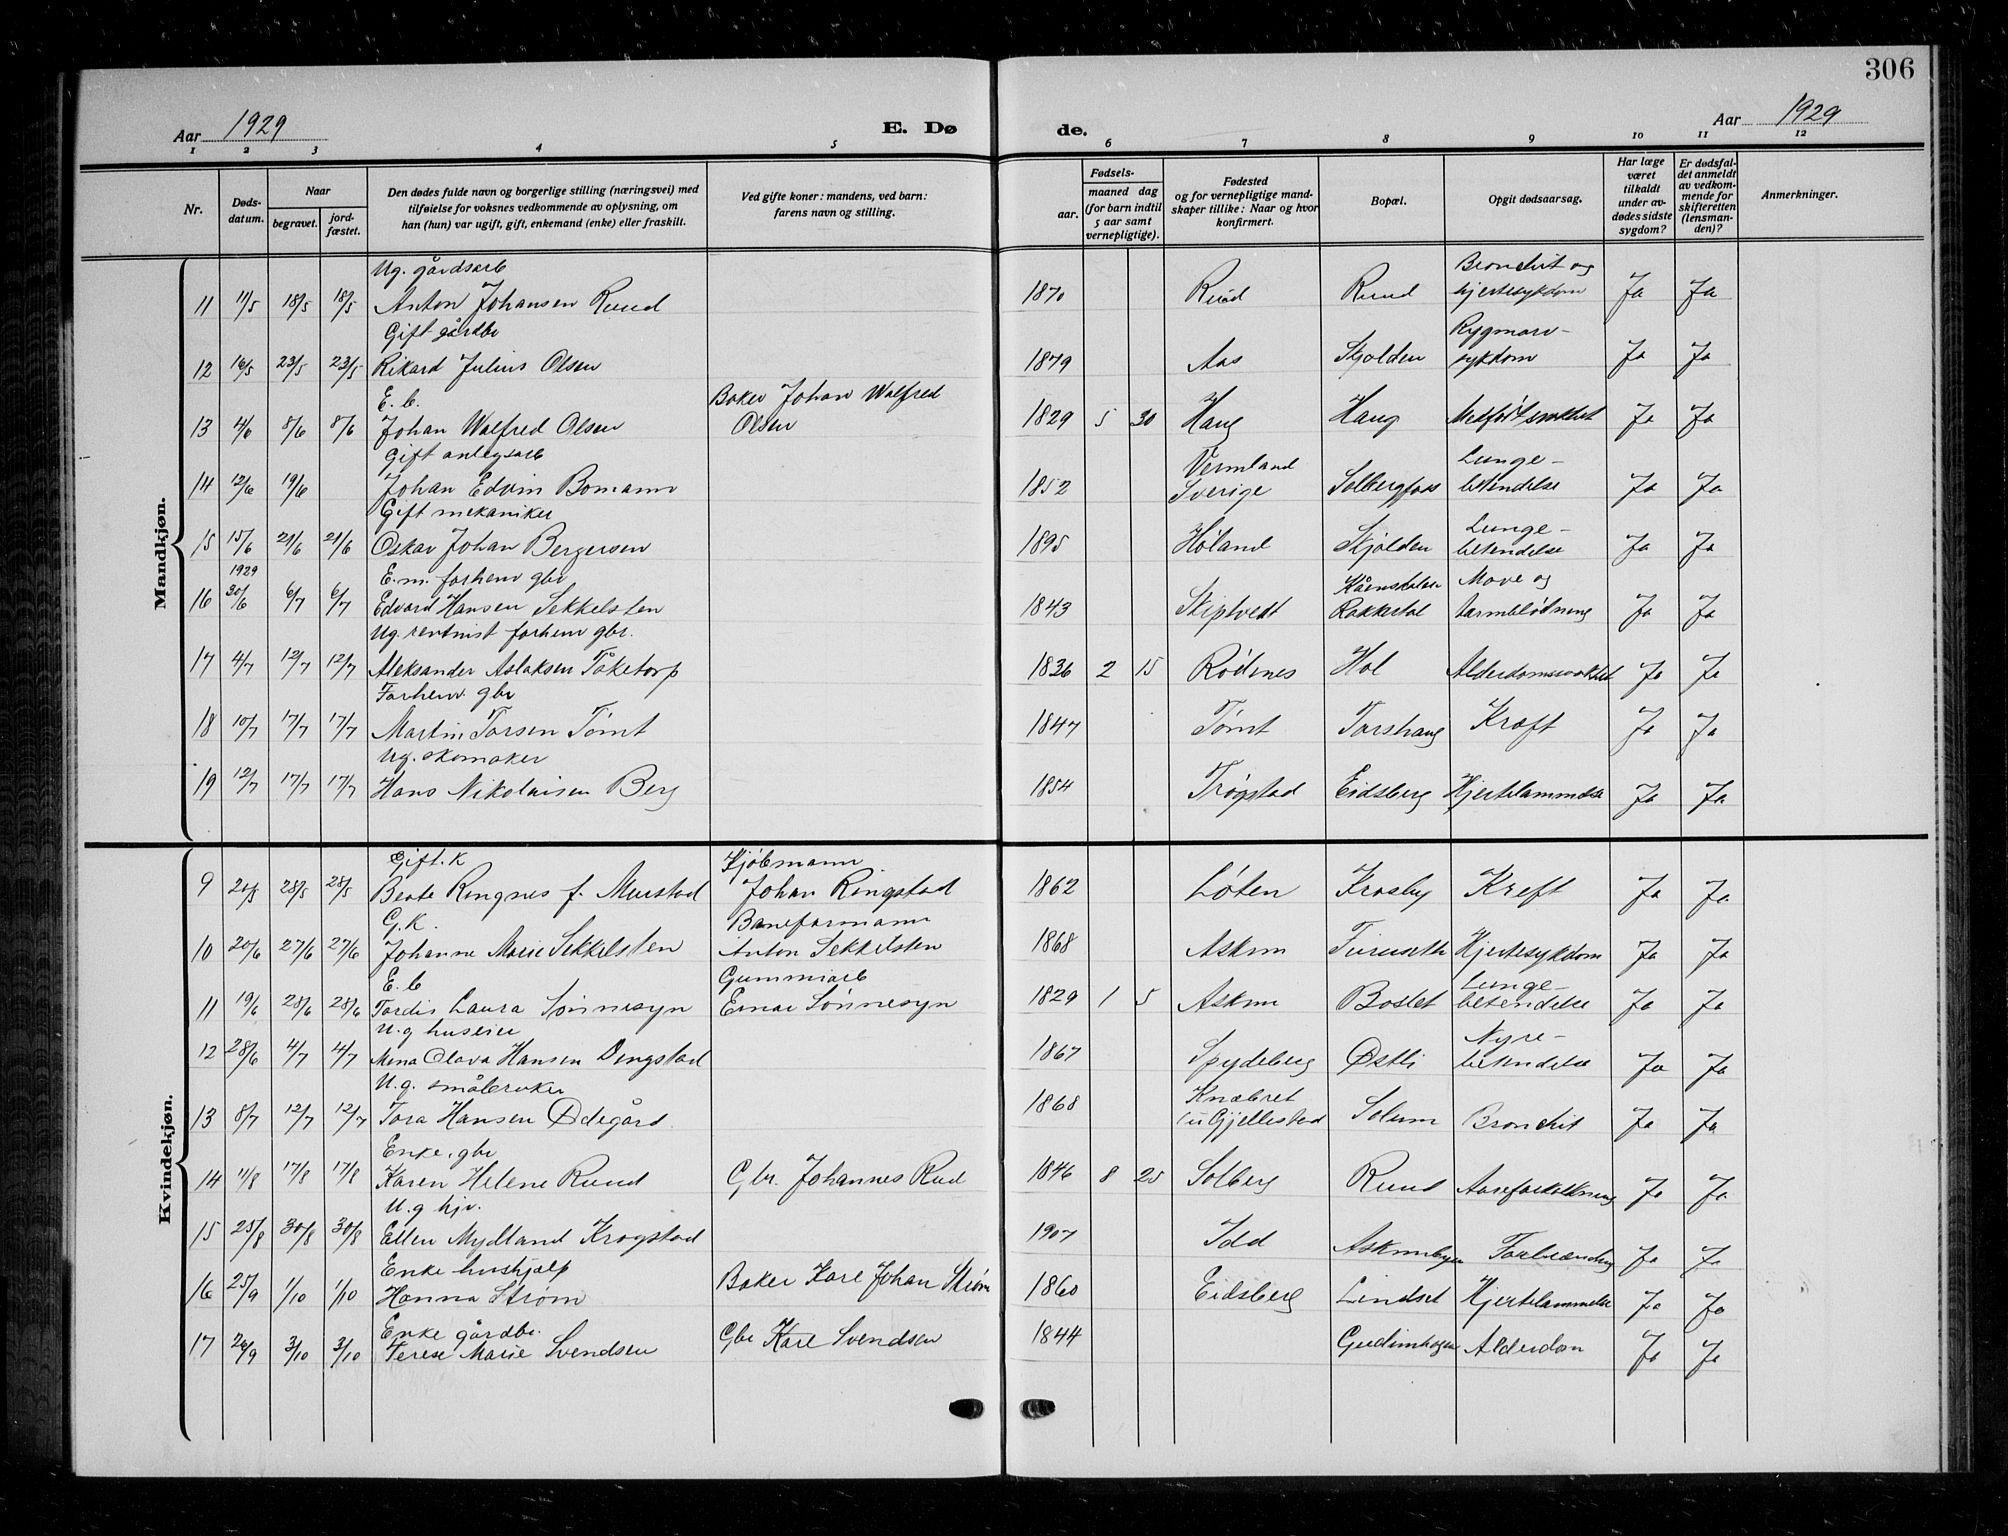 306
Aar 1929
E. Dø
de.
Aar 1929
1 2 3 4 5 6 7 8 9 10 11 12
Nr.
Døds-
datum.
Naar
begravet.
jord-
fæstet.
Den dødes fulde navn og borgerlige stilling (næringsvei) med
tilføielse for voksnes vedkommende av oplysning, om
han (hun) var ugift, gift, enkemand (enke) eller fraskilt.
Ved gifte koner: mandens, ved barn:
farens navn og stilling.
Fødsels-
aar.
maaned dag
(for barn indtil
5 aar samt
vernepligtige).
Fødested
og for vernepligtige mand-
skaper tillike: Naar og hvor
konfirmert.
Bopæl.
Opgit dødsaarsag.
Har læge
været
tilkaldt
under av-
dødes sidste
sygdom?
Er dødsfal-
det anmeldt
av vedkom-
mende for
skifteretten
(lensman-
den)?
Anmerkninger.
Mandkjøn.
Ug. gårdsarb Bronchit og
11 11/5 18/5 18/5 Anton Johansen Ruud 1870 Ruud Ruud hjertesykdom Ja Ja
Gift gårdbr Rygmarv-
12 16/5 23/5 23/5 Rikard Julius Olsen 1879 Aas Skjolden sykdom Ja Ja
E. b. Baker Johan Walfred
13 4/6 8/6 8/6 Johan Walfred Olsen Olsen 1829 5 30 Haug Haug Medfødt svakhet Ja Ja
Gift anlegsarb Vermland Lunge-
14 12/6 19/6 Johan Edvin Bomann 1852 Sverige Solbergfoss betendelse Ja Ja
Gift mekaniker Lunge-
15 15/6 21/6 21/6 Oskar Johan Bergersen 1895 Høland Skjolden betendelse Ja Ja
1929 E.m. forhenv gbr Mave og
16 30/6 6/7 6/7 Edvard Hansen Sekkelsten 1843 Skiptvedt Rakkestad tarmblødning Ja Ja
Ug. rentnist forhenv gbr.
17 4/7 12/7 12/7 Aleksander Aslaksen Taketorp 1836 2 15 Rødenes Hol Alderdomssvakhet Ja Ja
Forhenv gbr
18 10/7 17/7 17/7 Martin Torsen Tømt 1847 Tømt Torshaug Kræft Ja Ja
Ug. skomaker
19 12/7 17/7 17/7 Hans Nikolaisen Berg 1854 Trøgstad Eidsberg Hjertelammelse Ja Ja
Kvindekjøn.
Gift. K Kjøbmann
9 20/5 28/5 28/5 Beate Ringnes f. Meustad Johan Ringstad 1862 Løten Krosby Kreft Ja Ja
G.K. Baneformann
10 20/6 27/6 27/6 Johanne Marie Sekkelsten Anton Sekkelsten 1868 Askim Furuseth Hjertesykdom Ja Ja
E. b Gummiarb Lunge-
11 19/6 28/6 28/6 Tordis Laura Sønnesyn Einar Sønnesyn 1829 1 5 Askim Bostet betendelse Ja Ja
U.g huseier Nyre-
12 28/6 4/7 4/7 Mina Olava Hansen Dingstad 1867 Spydeberg Østli betendelse Ja Ja
U.g. småbruker Knæbret
13 8/7 12/7 12/7 Tora Hansen Ødegård 1868 u Gjellestad Solum Bronchit Ja Ja
Enke, gbr
14 11/8 17/8 17/8 Karen Helene Ruud Gbr. Johannes Rud 1846 8 25 Solberg Ruud Aareforkalkning Ja Ja
U.g hjv.
15 25/8 30/8 30/8 Ellen Mydland Krogstad 1907 Idd Askimbyen Forbrænding Ja Ja
Enke hushjælp
16 25/9 1/10 1/10 Hanna Strøm Baker Karl Johan Strøm 1860 Eidsberg Lindset Hjertelammelse Ja Ja
Enke gårdbr.
17 26/9 3/10 3/10 Terese Marie Svendsen Gbr Karl Svendsen 1844 Gudimhagen Alderdom Ja Ja